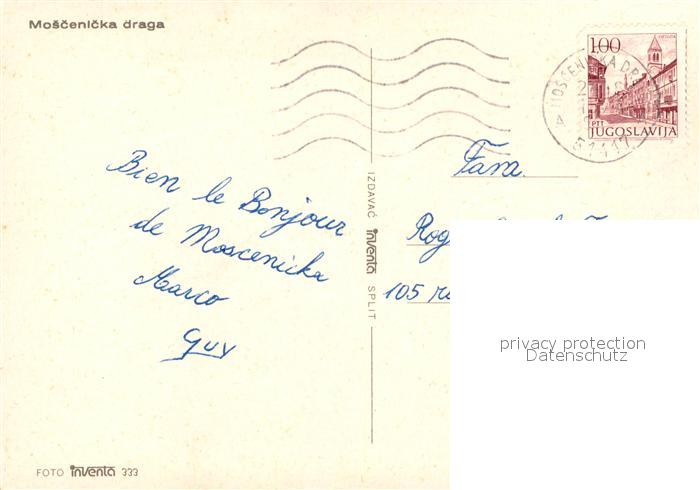 Mošćenička draga
1.00
PTT
JUGOSLAVIJA
MOŠĆENIČKA DR
51417
Bien le Bonjour
de Moscenicka
Marco
Guy
IZDAVAČ inventa SPLIT
Fam.
Rog
105 r
privacy protection
Datenschutz
FOTO inventa 333